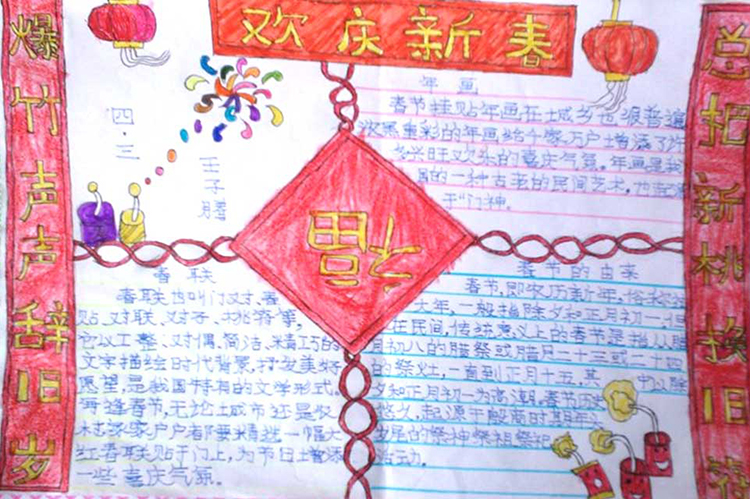 欢庆新春
爆竹声声辞旧岁
总把新桃换旧符
四·三
王子腾
福
年画
春节挂贴年画在城乡也很普遍
浓黑重彩的年画给千家万户增添了许
多兴旺欢乐的喜庆气氛。年画是我
国的一种古老的民间艺术,
于门神。
春联
春联也叫门对、春
贴、对联、对子、桃符等,
它以工整、对偶、简洁、精巧的
文字描绘时代背景,抒发美好
愿望,是我国特有的文学形式。
再逢春节,无论城市还是农
村,家家户户都要精选一幅大
红春联贴于门上,为节日增添
一些喜庆气氛。
春节的由来
春节,即农历新年,俗称过
大年,一般指除夕和正月初一。但
在民间,传统意义上的春节是指从腊
月初八的腊祭或腊月二十三或二十四
的祭灶,一直到正月十五,其中以除
夕和正月初一为高潮。春节历史
悠久,起源于殷商时期年
岁尾的祭神祭祖祭祀
活动。